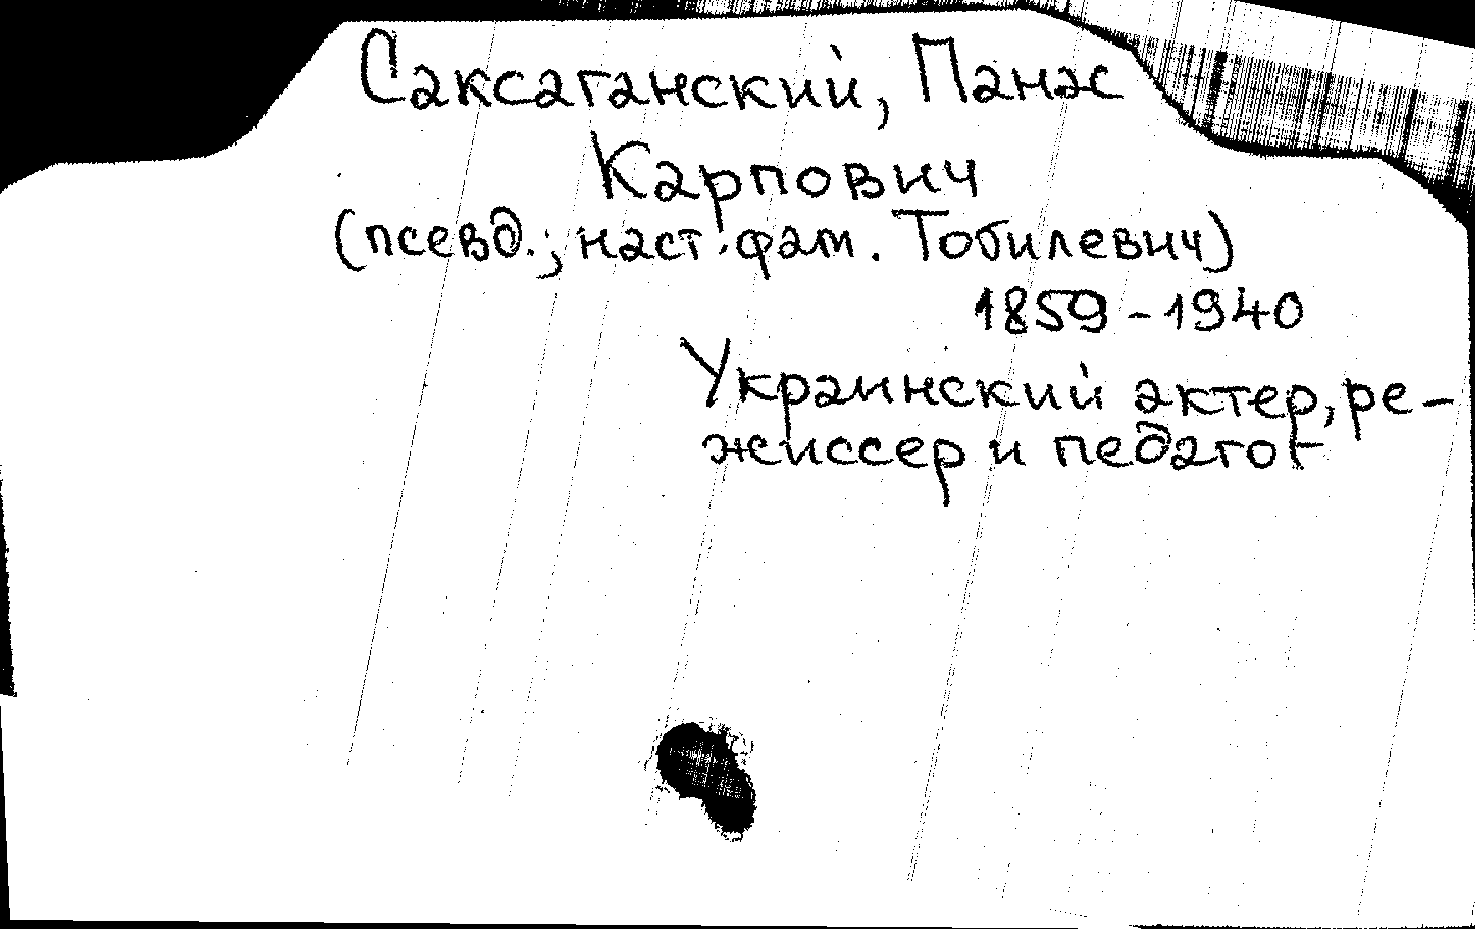 Саксаганский, Панас
Карпович
(псевд.; наст. фам. Тобилевич)
1859-1940
Украинский актер, ре-
жиссер и педагог